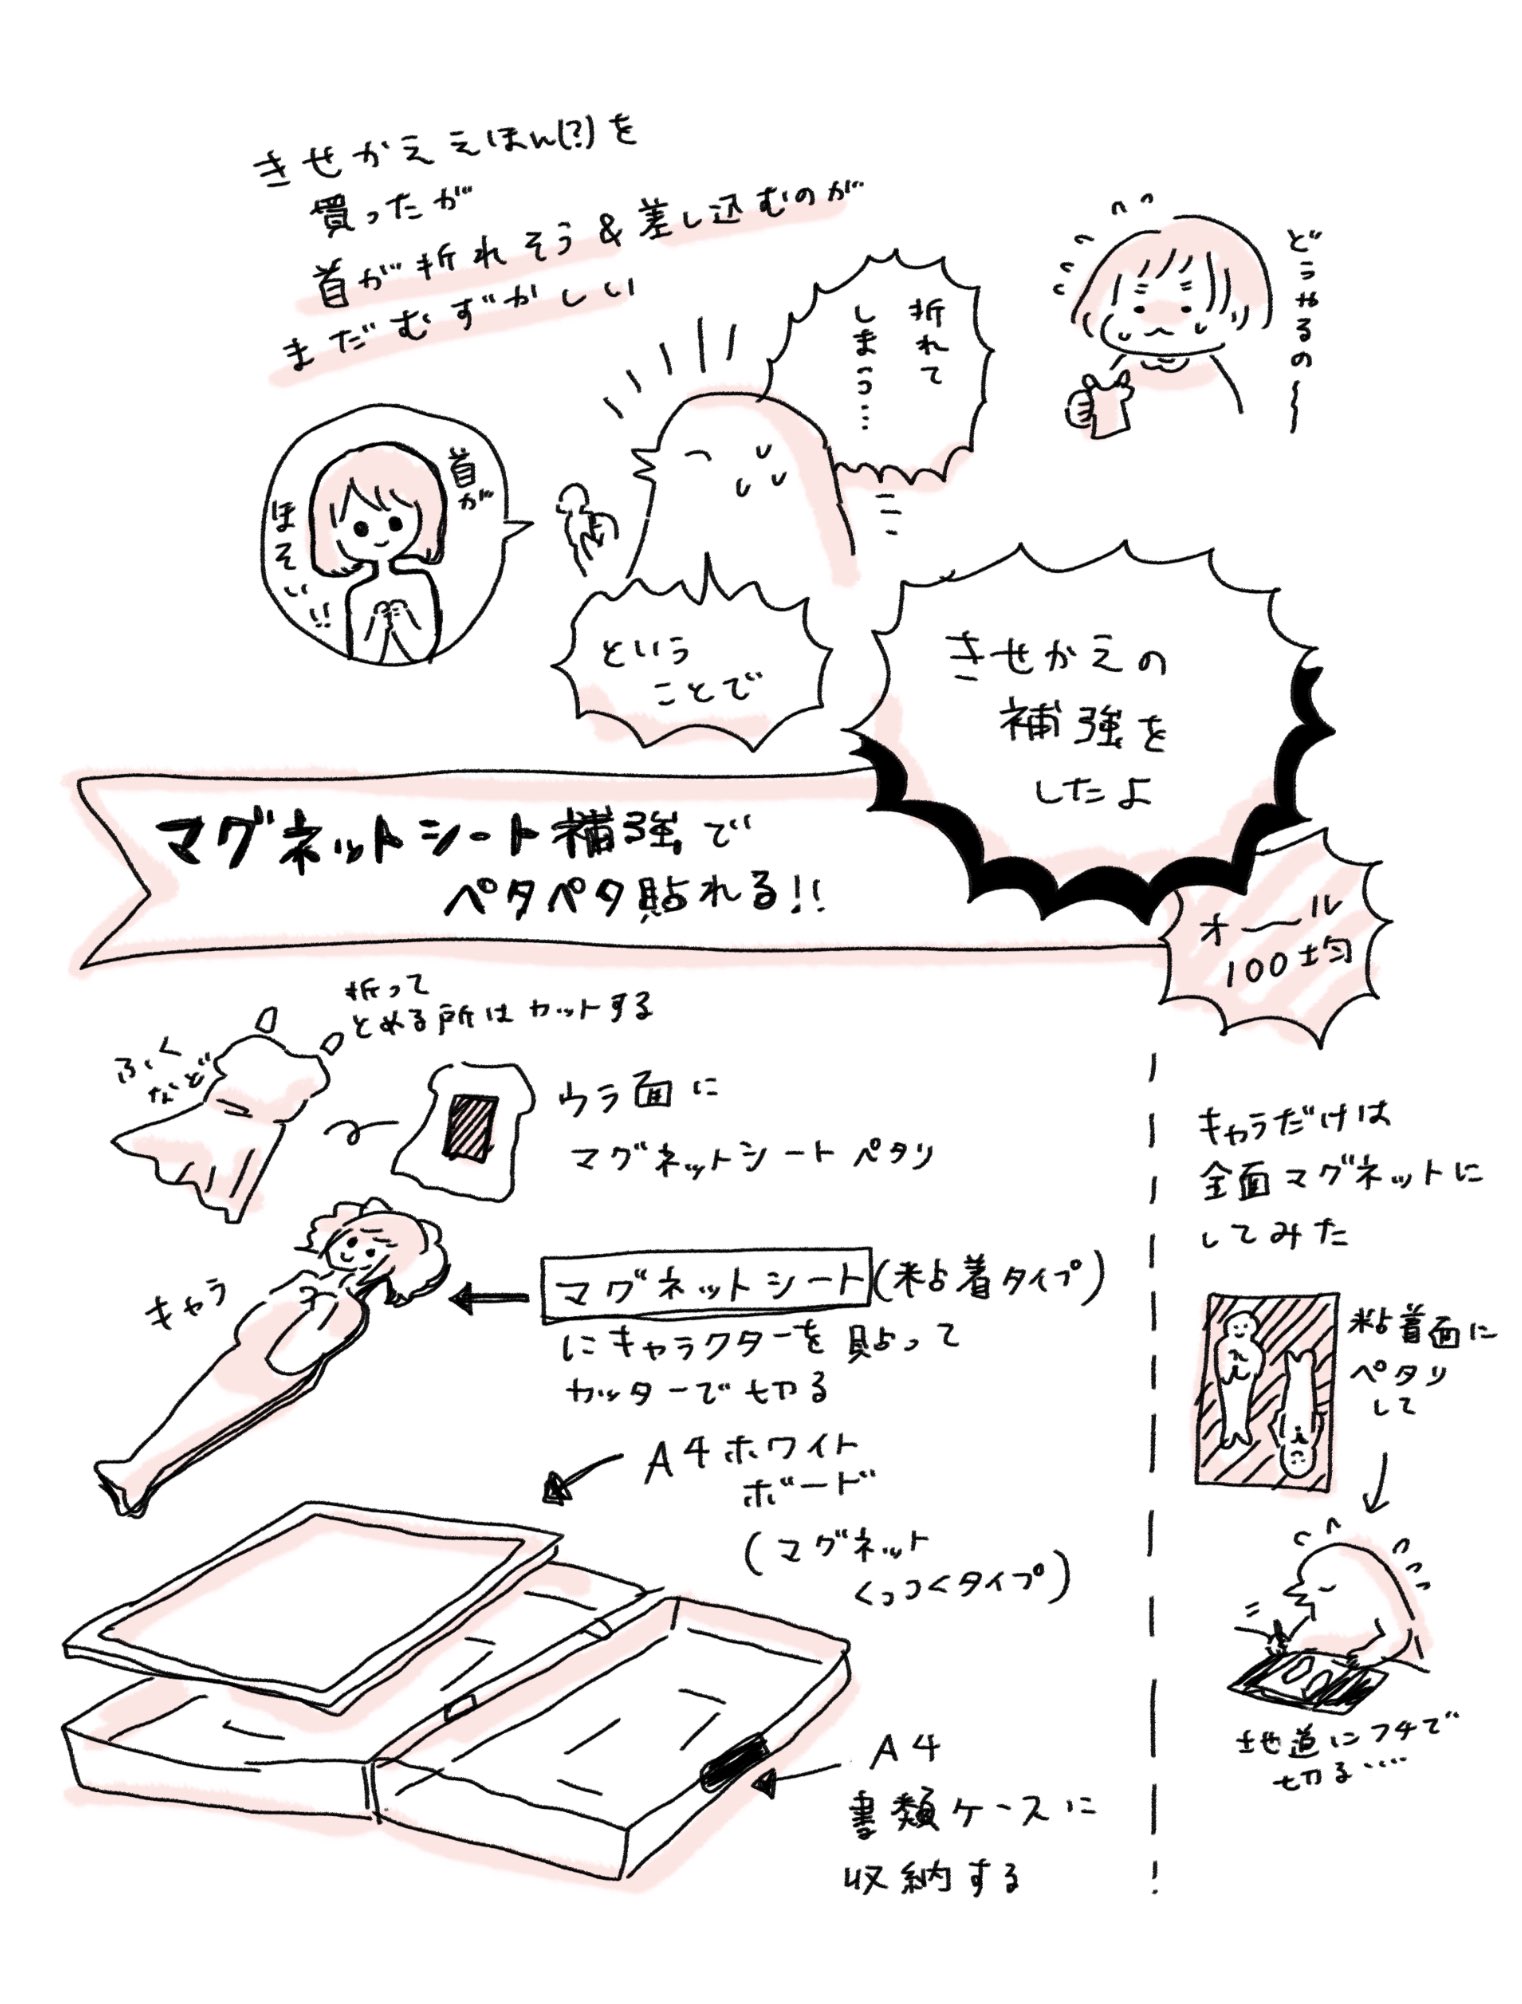 きせかええほん(?)を
買ったが
首が折れそう&差し込むのが
まだむずかしい
どうやるの〜
折れて
しまつ…
首が
ほそい!!
という
ことで
きせかえの
補強を
したよ
マグネットシート補強で
ペタペタ貼れる!!
オール
100均
折って
とめる所はカットする
ふく
など
ウラ面に
マグネットシートペタリ
キャラ
マグネットシート(粘着タイプ)
にキャラクターを貼って
カッターで切る
A4ホワイト
ボード
(マグネット
くっつくタイプ)
A4
書類ケースに
収納する
キャラだけは
全面マグネットに
してみた
粘着面に
ペタリ
して
地道にフチで
切る……